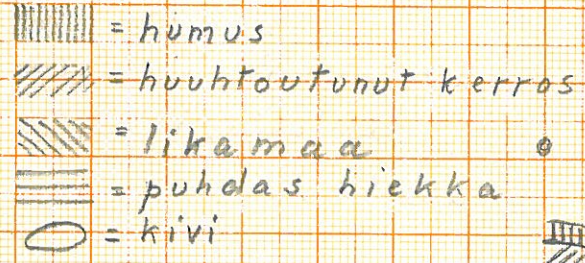 = humus
= huuhtoutunut kerros
= likamaa
= puhdas hiekka
= kivi